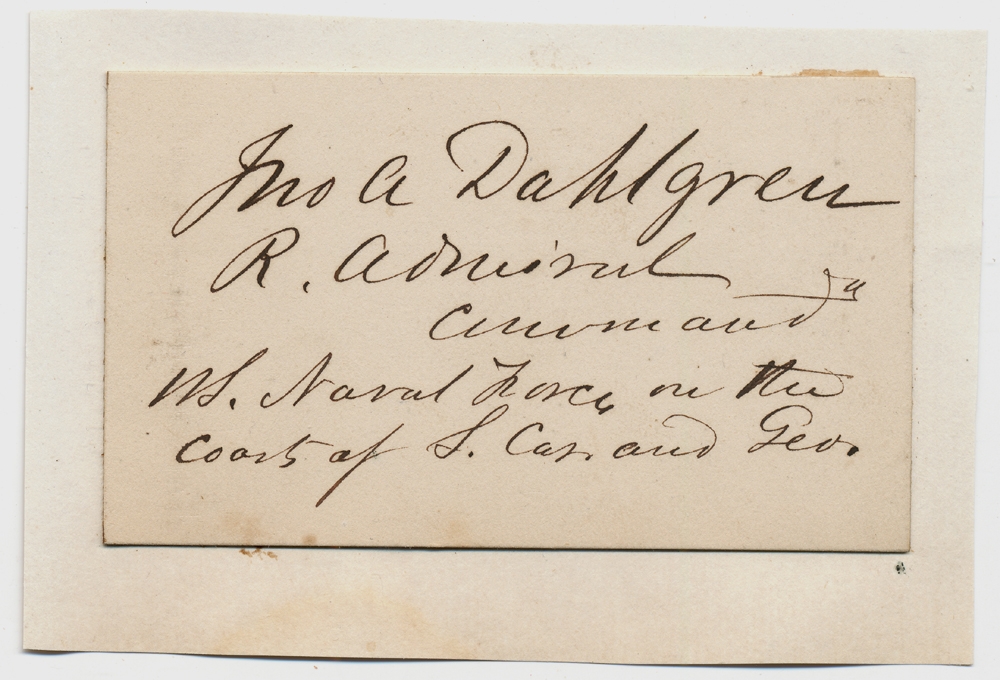 Jno A Dahlgren
R. Admiral
Command
US. Naval Force on the
Coasts of S. Car. and Geo.